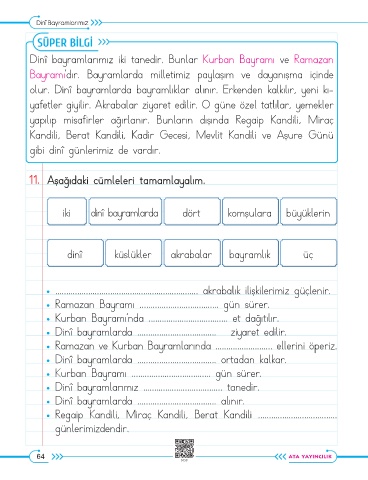 Dinî Bayramlarımız
SÜPER BİLGİ
Dinî bayramlarımız iki tanedir. Bunlar Kurban Bayramı ve Ramazan
Bayramı'dır. Bayramlarda milletimiz paylaşım ve dayanışma içinde
olur. Dinî bayramlarda bayramlıklar alınır. Erkenden kalkılır, yeni kı-
yafetler giyilir. Akrabalar ziyaret edilir. O güne özel tatlılar, yemekler
yapılıp misafirler ağırlanır. Bunların dışında Regaip Kandili, Miraç
Kandili, Berat Kandili, Kadir Gecesi, Mevlit Kandili ve Aşure Günü
gibi dinî günlerimiz de vardır.
11. Aşağıdaki cümleleri tamamlayalım.
iki dinî bayramlarda dört komşulara büyüklerin
dinî küslükler akrabalar bayramlık üç
• ........................................ akrabalık ilişkilerimiz güçlenir.
• Ramazan Bayramı ........................ gün sürer.
• Kurban Bayramı'nda ........................ et dağıtılır.
• Dinî bayramlarda ........................ ziyaret edilir.
• Ramazan ve Kurban Bayramlarında ................ ellerini öperiz.
• Dinî bayramlarda ........................ ortadan kalkar.
• Kurban Bayramı ........................ gün sürer.
• Dinî bayramlarımız ........................ tanedir.
• Dinî bayramlarda ........................ alınır.
• Regaip Kandili, Miraç Kandili, Berat Kandili ........................
günlerimizdendir.
64
ATA YAYINCILIK